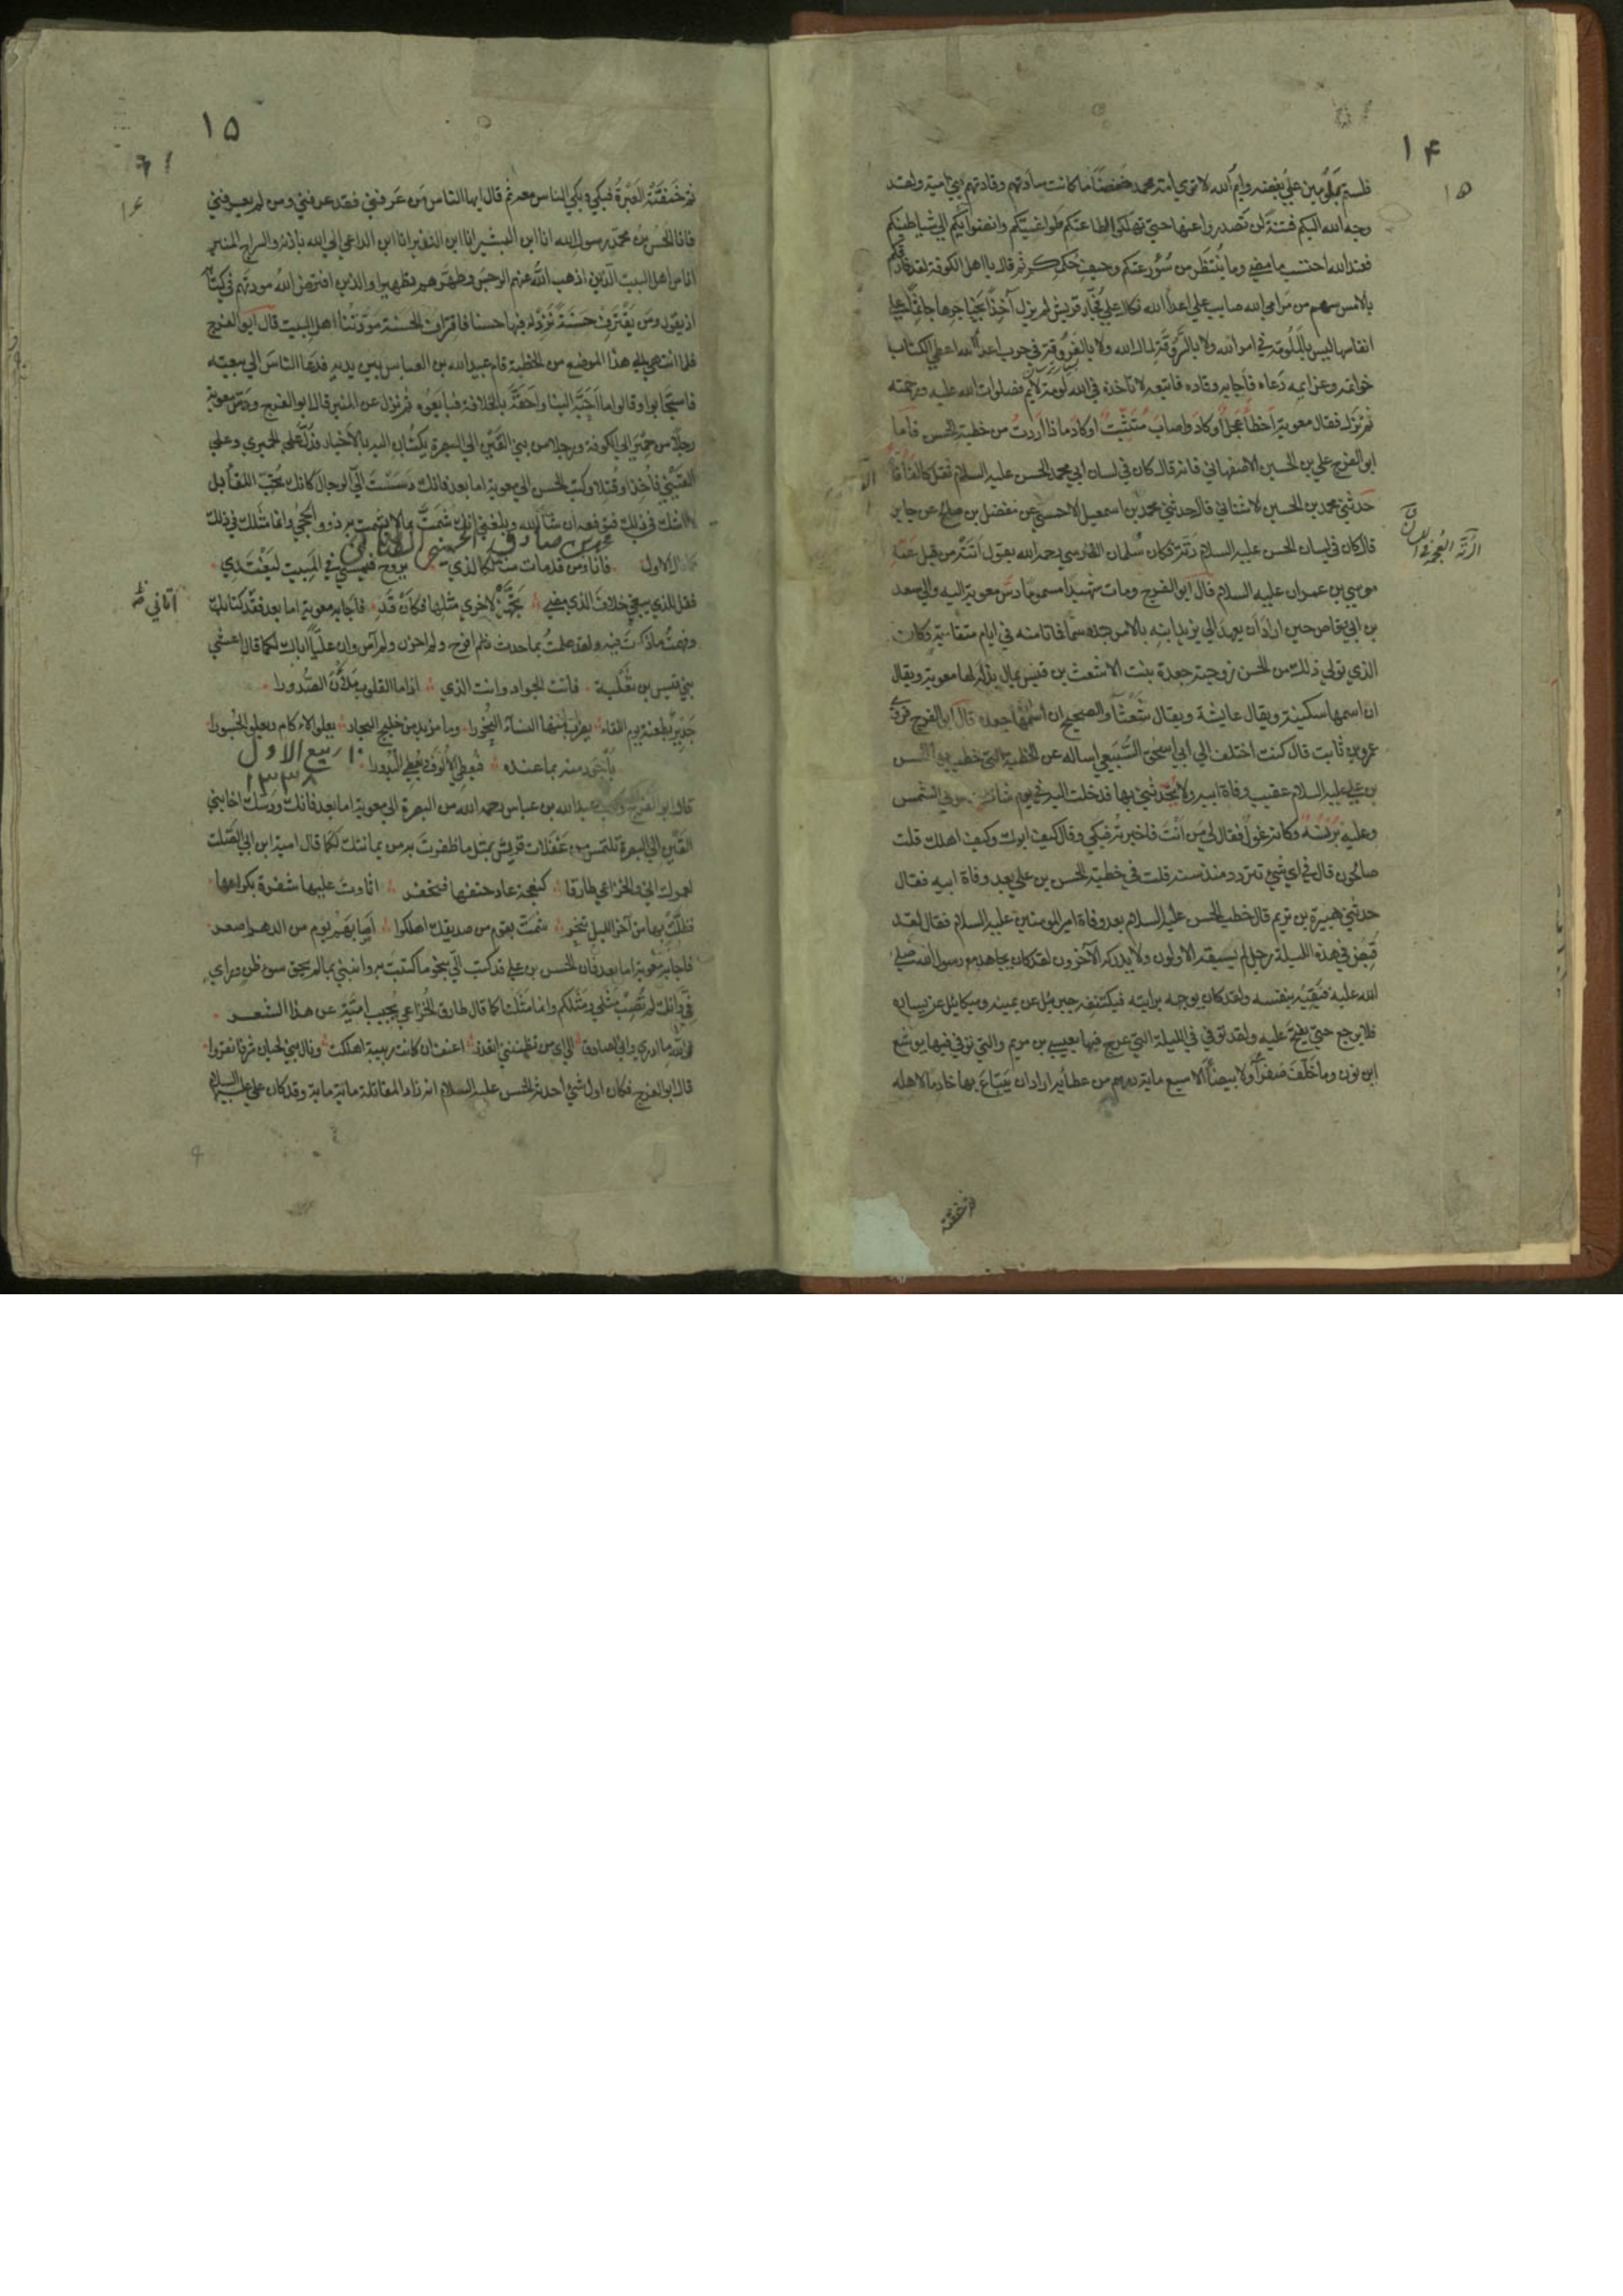 ١۴
١۵
فلستم تملون من علي بغضه وايم الله لا ترى امة محمد خفضا ما كانت سادتهم وقادتهم بني امية ولقد
وجه الله اليكم فتنة لن تصدروا عنها حتى تهلكوا لطاعتكم طواغيتكم وانضوائكم الى شياطينكم
فعند الله احتسب ما مضى وما ينتظر من سوء رعتكم وحيف حكمكم ثم قال يا اهل الكوفة لقد فارقكم
بالامس سهم من مرامي الله صايب على اعداء الله نكال على فجار قريش لم يزل آخذا بحناجرها جاثما على
انفاسها ليس بالملومة في امر الله ولا بالسروقة لمال الله ولا بالفروقة في حرب اعداء الله اعطى الكتاب
خواتمه وعزائمه دعاه فاجابه وقاده فاتبعه لا تاخذه في الله لومة لايم فصلوات الله عليه ورحمته
ثم نزل فقال معوية اخطأ عجل او كاد واصاب متثبت او كاد ماذا اردت من خطبة الحسن فاما
ابو الفرج علي بن الحسين الاصفهاني فانه قال كان في لسان ابي محمد الحسن عليه السلام ثقل كالفأفأة
حدثني محمد بن الحسين الاشناني قال حدثني محمد بن اسمعيل الاحمسي عن مفضل بن صالح عن جابر
قال كان في لسان الحسن عليه السلام رتة فكان سلمان الفارسي رحمه الله يقول اتته من قبل عمه
موسى بن عمران عليه السلام قال ابو الفرج ومات شهيدا مسموما دس معوية اليه والى سعد
بن ابي وقاص حين اراد ان يعهد الى يزيد ابنه بالامر بعده سما فماتا منه في ايام متقاربة وكان
الذي تولى ذلك من الحسن زوجته جعدة بنت الاشعث بن قيس بمال بذله لها معوية ويقال
ان اسمها سكينة ويقال عايشة ويقال شعثاء والصحيح ان اسمها جعدة قال ابو الفرج فروى
عمرو بن ثابت قال كنت اختلف الى ابي اسحق السبيعي اساله عن الخطبة التي خطب بها الحسن
بن علي عليه السلام عقيب وفاة ابيه ولا يحدثني بها فدخلت اليه في يوم شات وهو في الشمس
وعليه برنسه وكانه غول فقال لي من انت فاخبرته فبكى وقال كيف ابوك وكيف اهلك قلت
صالحون قال في اي شيء تتردد منذ سنة قلت في خطبة الحسن بن علي بعد وفاة ابيه فقال
حدثني هبيرة بن يريم قال خطب الحسن عليه السلام بعد وفاة امير المومنين عليه السلام فقال لقد
قبض في هذه الليلة رجل لم يسبقه الاولون ولا يدركه الآخرون لقد كان يجاهد مع رسول الله صلى
الله عليه فيقيه بنفسه ولقد كان يوجهه برايته فيكتنفه جبرئيل عن يمينه وميكائيل عن يساره
فلا يرجع حتى يفتح عليه ولقد توفي في الليلة التي عرج فيها بعيسى بن مريم والتي توفي فيها يوشع
ابن نون وما خلف صفراء ولا بيضاء الا سبع ماية درهم من عطائه اراد ان يبتاع بها خادما لاهله
الرتة العجمة في اللسان
ثم خنقته
١۵
١۶
ثم خنقته العبرة فبكى وبكى الناس معه ثم قال ايها الناس من عرفني فقد عرفني ومن لم يعرفني
فانا الحسن بن محمد رسول الله انا ابن البشير انا ابن النذير انا ابن الداعي الى الله باذنه والسراج المنير
انا من اهل البيت الذين اذهب الله عنهم الرجس وطهرهم تطهيرا والذين افترض الله مودتهم في كتابه
اذ يقول ومن يقترف حسنة نزد له فيها حسنا فاقتراف الحسنة مودتنا اهل البيت قال ابو الفرج
فلما انتهى الى هذا الموضع من الخطبة قام عبيد الله بن العباس بين يديه فدعا الناس الى بيعته
فاستجابوا وقالوا ما احبه الينا واحقه بالخلافة فبايعوه ثم نزل عن المنبر قال ابو الفرج ودس معوية
رجلا من حمير الى الكوفة ورجلا من بني القين الى البصرة يكتبان اليه بالاخبار فدل على الحميري وعلى
القيني فاخذا وقتلا وكتب الحسن الى معوية اما بعد فانك دسست الي الرجال كانك تحب اللقاء بل
لا اشك في ذلك فتوقعه ان شاء الله وبلغني انك شمت بما لا يشمت به ذوو الحجى وانما مثلك في ذلك
محمد بن صادق الحسيني الطباطبائي
قال الاول فانا ومن قد مات منا لكالذي يروح فيمسي في المبيت ليغتدي
فقل للذي يبغي خلاف الذي مضى تجهز لاخرى مثلها فكأن قد فاجابه معوية اما بعد فقد كتابك
اتاني ظ
وفهمت ما ذكرت فيه ولقد علمت بما حدث فلم افرح ولم احزن ولم آس وان عليا اباك لكما قال اعشى
بني قيس بن ثعلبة فانت الجواد وانت الذي اذا ما القلوب ملأن الصدورا
جدير بطعنة يوم اللقاء يضرب منها النساء النحورا وما مزبد من خليج البحار يعلو الاكام ويعلو الجسورا
باجود منه بما عنده فيعطي الالوف ويعطي البدورا
١٠ ربيع الاول
١٣٣٨
قال ابو الفرج وكتب عبد الله بن عباس رحمه الله من البصرة الى معوية اما بعد فانك ودسك اخا بني
القين الى البصرة تلتمس من غفلات قريش بمثل ما ظفرت به من يمانيتك لكما قال امية ابن ابي الصلت
لعمرك اني والخزاعي طارقا كنعجة عاد حتفها تتحفر اثارت عليها شفرة بكراعها
فظلت بها من آخر الليل تنحر شمت بقوم من صديقك اهلكوا اصابهم يوم من الدهر اصعر
فاجابه معوية اما بعد فان الحسن بن علي قد كتب الي بنحو ما كتبت به وانبني بما لم يحق سوء ظن وراي
في وانك لم تصب مثلي ومثلكم وانما مثلنا كما قال طارق الخزاعي يجيب امية عن هذا الشعر
فوالله ما ادري واني لصادق الى اي من تظنني اتعذر اعنف ان كانت زبينة اهلكت ونال بني لحيان شر فانفروا
قال ابو الفرج فكان اول شيء احدثه الحسن عليه السلام انه زاد المقاتلة ماية ماية وقد كان علي عليه السلام